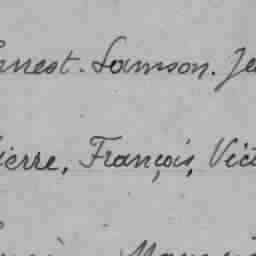 Ernest. Samson. Je
Pierre, François, Vict